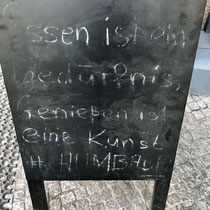 Essen ist ein
bedürfnis,
Genießen ist
eine Kunst
# HUMBAUR